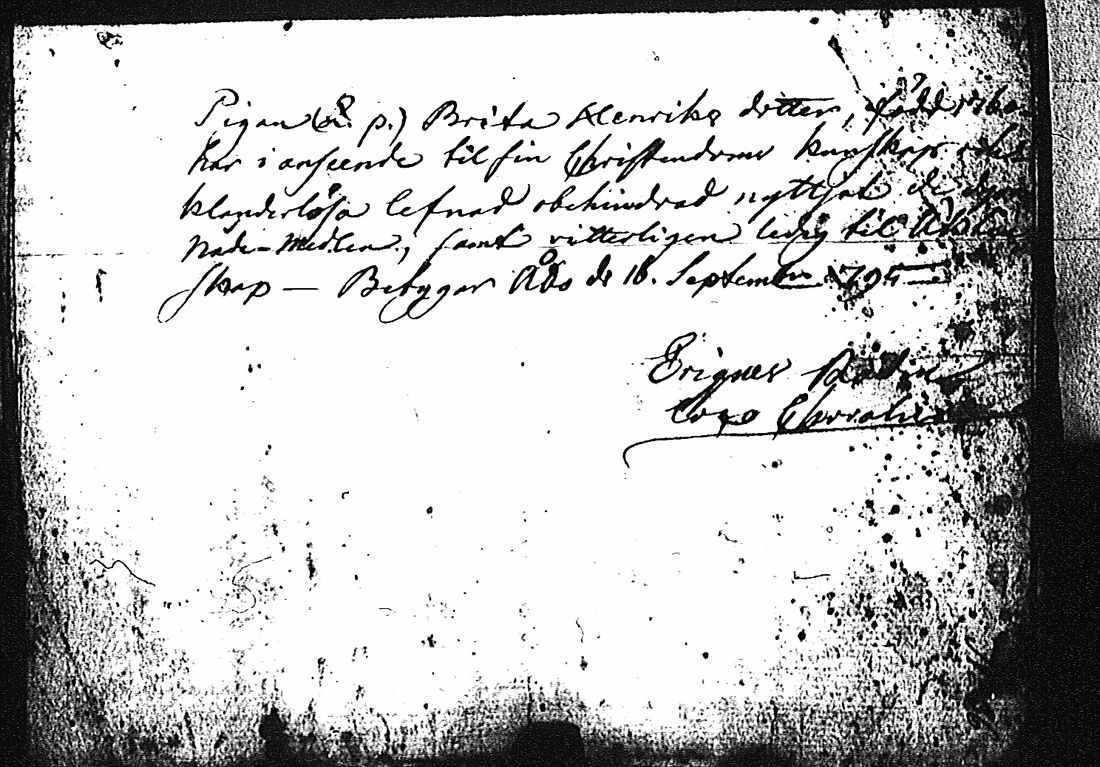 Pigan (S. p.) Brita Henriks dotter, född 1760
har i anseende til sin Christendoms kunskap och
klanderlösa lefnad obehindrad nyttjat de dyra
Nade-Medlen, samt vitterligen ledig til Äktен
skap — Betygar Åbo d. 16. September 1795
Erignes